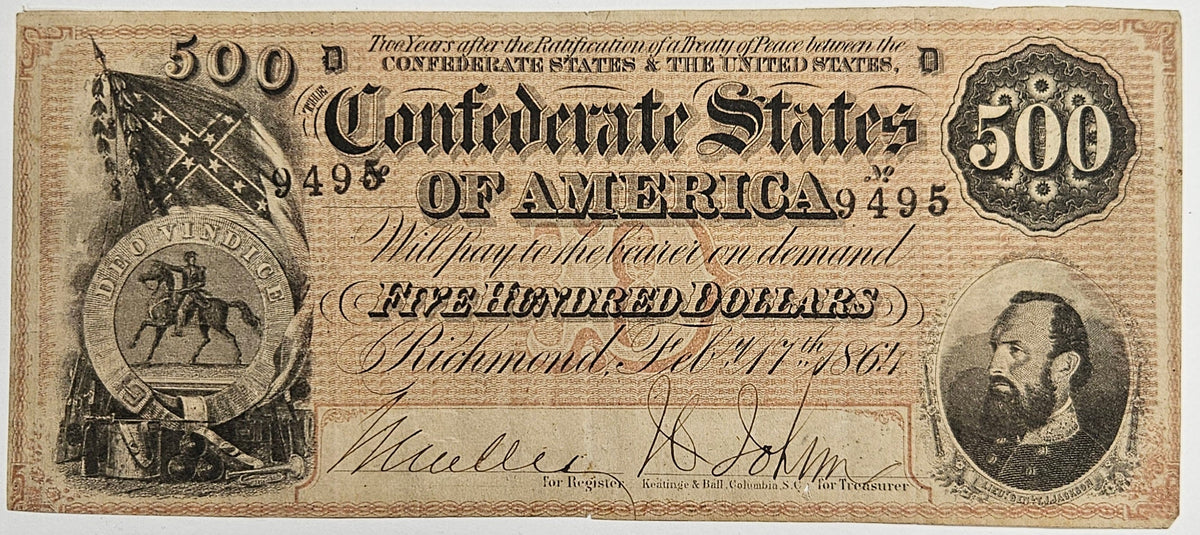 500 D Two Years after the Ratification of a Treaty of Peace between the D
CONFEDERATE STATES & THE UNITED STATES,
THE
Confederate States
500
9495 No
OF AMERICA
No 9495
Will pay to the bearer on demand
DEO VINDICE
FIVE HUNDRED DOLLARS
Richmond, Feby. 17th 1864.
for Register Keatinge & Ball, Columbia, S.C. for Treasurer
LIEUT. GEN. T. J. JACKSON